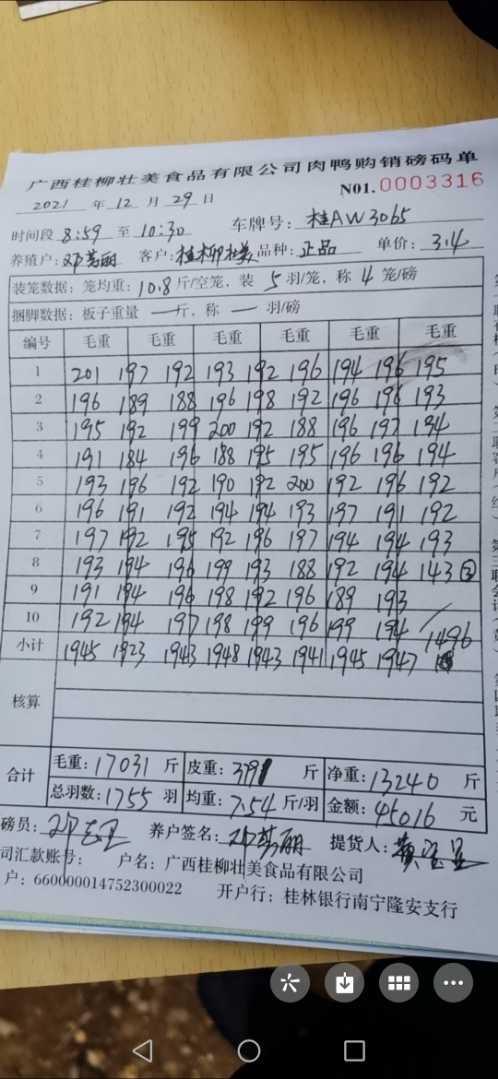 广西桂柳壮美食品有限公司肉鸭购销磅码单
2021 年 12 月 29 日 N01.0003316
时间段 8:59 至 10:30 车牌号: 桂AW3065
养殖户: 邓芳丽 客户: 桂柳壮美 品种: 正品 单价: 3.4
装笼数据: 笼均重: 10.8 斤/空笼, 装 5 羽/笼, 称 4 笼/磅
捆脚数据: 板子重量 — 斤, 称 — 羽/磅
编号 毛重 毛重 毛重 毛重 毛重
1 201 197 192 193 192 196 194 196 195
2 196 189 188 196 198 192 196 196 193
3 195 192 199 200 192 188 196 197 194
4 191 184 196 188 195 195 196 196 194
5 193 196 192 190 192 200 192 196 192
6 196 191 192 194 194 193 197 191 192
7 197 192 195 192 196 197 194 194 193
8 193 194 196 199 193 188 192 194 143 ③
9 191 194 196 198 192 196 189 193
10 192 194 197 198 199 196 199 194
小计 1945 1923 1943 1948 1943 1941 1945 1947 1496
核算
合计 毛重: 17031 斤 皮重: 3791 斤 净重: 13240 斤
总羽数: 1755 羽 均重: 7.54 斤/羽 金额: 45016 元
磅员: 养户签名: 邓芳丽 提货人:
司汇款账号: 户名: 广西桂柳壮美食品有限公司
户: 660000014752300022 开户行: 桂林银行南宁隆安支行